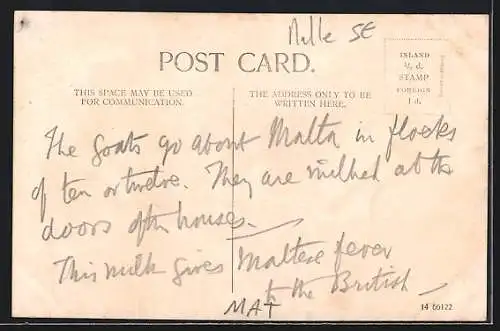 Malle SE
POST CARD.
THIS SPACE MAY BE USED
FOR COMMUNICATION.
THE ADDRESS ONLY TO BE
WRITTEN HERE.
ISLAND
½d.
STAMP
FOREIGN
1d.
The goats go about Malta in flocks
of ten or twelve. They are milked at the
doors of the houses.
This milk gives Maltese fever
to the British
MAT
14 66122